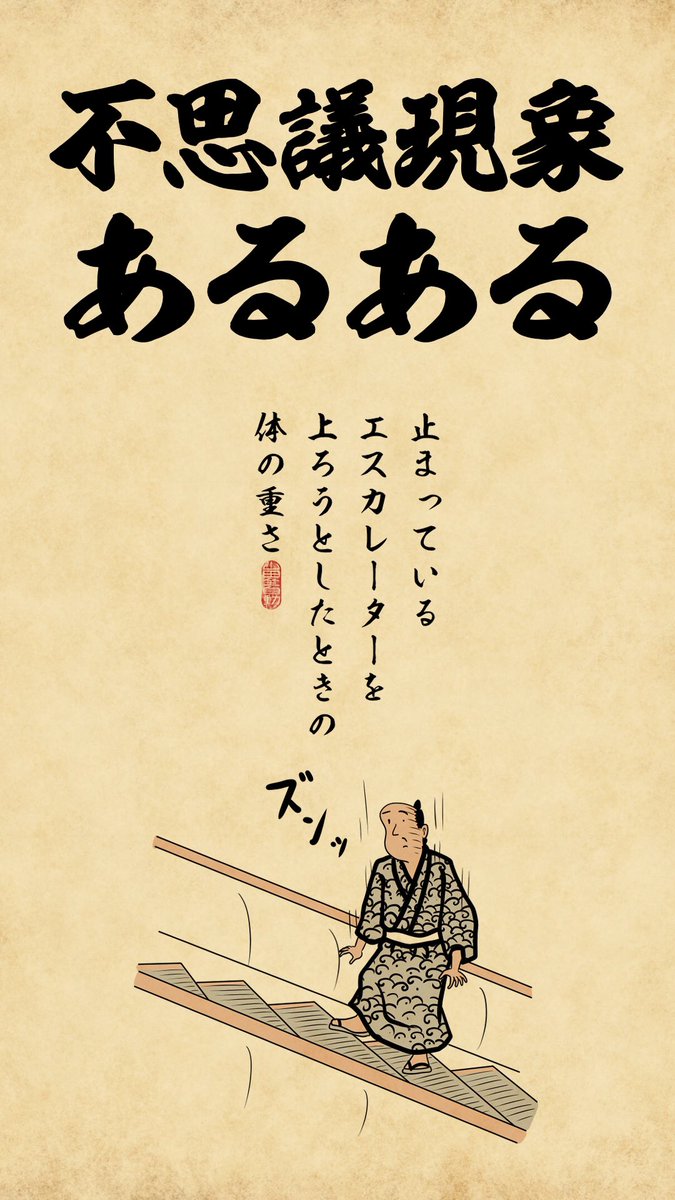 不思議現象
あるある
止まっている
エスカレーターを
上ろうとしたときの
体の重さ
ズンッ